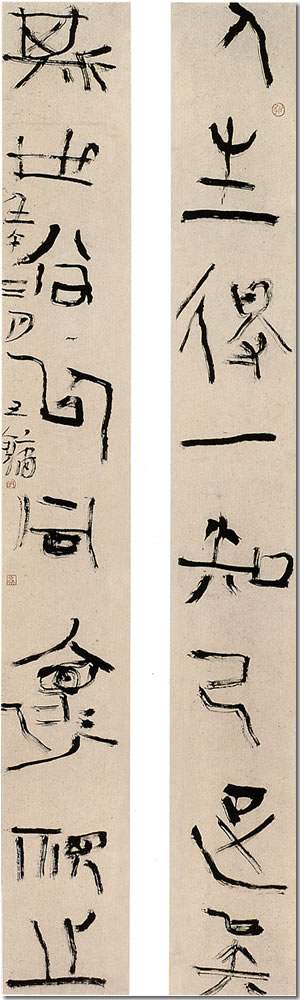 人生得一知己足矣
斯世當以同懷視之
壬午二月 王鏞